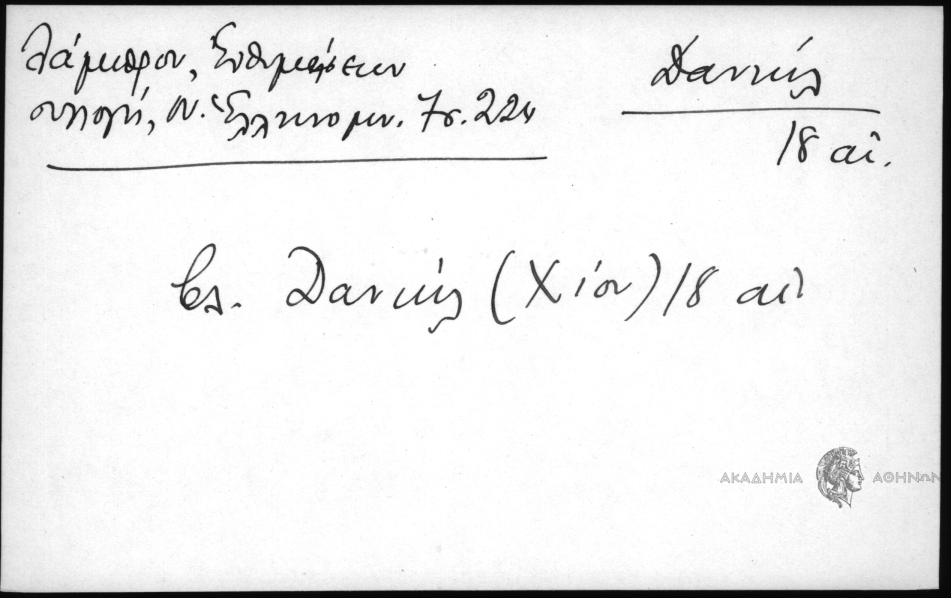 Λάμπρου, Ἐνθυμήσεων
συλλογή, Ν. Ἑλληνομν. 7 σ. 224
Δανιήλ
18 αἰ.
βλ. Δανιήλ (Χίου) 18 αἰ
ΑΚΑΔΗΜΙΑ ΑΘΗΝΩΝ